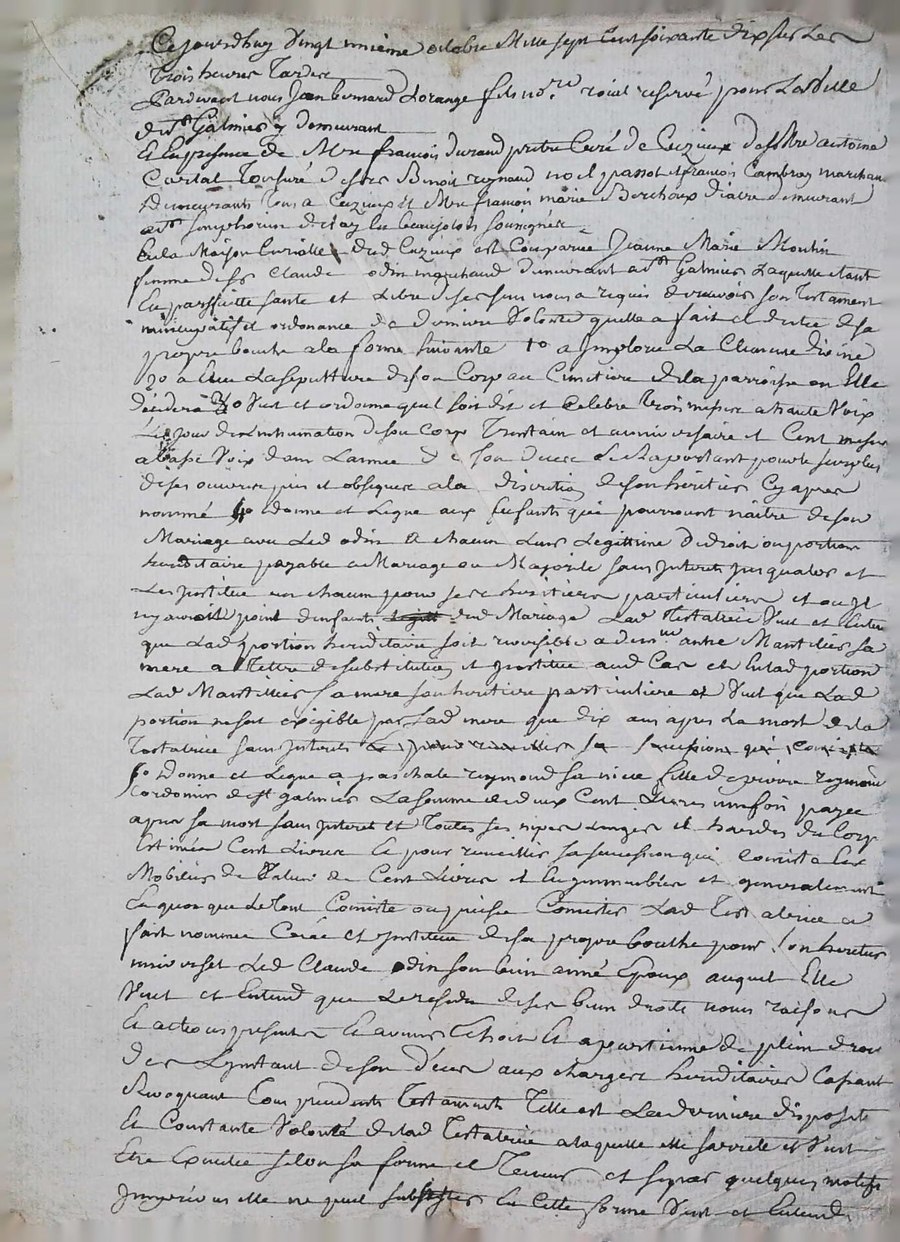 Ce jourdhuy Vingt unième octobre Mille sept Cent soixante dix sur Les
trois heures Tardee
Pardevant nous Jean bernard Lorange fils no.re roial reservé pour La Ville
de st Galmier y demeurant
Et En presence de Mre francois durand pretre Curé de Cuzieux de Mre antoine
tonsuré de srs Benoit reynaud noel passot et francois Cambray marchan
demeurants tous a Cuzieux et Mre francois marie Berchoux diacre demeurant
a st simphorien de Lay En beaujolois soussignés
En la Maison Curialle dud Cuzieux est Comparue Jeanne Marie Moulin
femme de sr Claude odin marchand demeurant a st Galmier Laquelle etant
En parffaitte santé et Libre de ses sens nous a requis de recevoir son Testament
nuncupatif et ordonance de derniere Volonté quelle a fait et dicté de sa
propre bouche a la forme suivante 1o a Imploré La Clemence divine
2o a Elu La sepulture de son Corp au Cimetiere de la parroisse ou Elle
décédera 3o Veut et ordonne quil soit dit et Celebré trois messes a haute Voix
Le jour de Linhumation de son Corp Trentain et anniversaire et Cent messes
a basse Voix dans Lannee de son deces se raportant pour le surplus
de ses oeuvres pies et obseques a la discretion de son heritier Cy apres
nommé 4o donne et Legue aux Enfants qui pourront naitre de son
Mariage avec Led odin a chacun Leur Legittime de droit ou portion
hereditaire payable a Mariage ou Majorité sans Interets jusqualors et
Les Institue un chacun pour ses heritiers particuliers et ou Il
ny auroit point denfants dud Mariage Lad Testatrice Veut et Entend
que Lad portion hereditaire soit reversible a dem.lle antre Mantillier sa
mere a Tittre de substitution et Institue aud Cas et En lad portion
Lad Mantillier sa mere son heritiere particuliere et Veut que Lad
portion ne soit exigible par Lad mere que dix ans apres La mort de la
Testatrice sans Interets
5o donne et Legue a paschale reymond sa niece fille de reymond
Cordonier de st galmier La somme de deux Cent Livres une fois payee
apres sa mort sans Interet et Toutes ses nipes Linges et hardes du Corp
Estimées Cent Livres Et pour recueillir sa succession qui Consiste En
Mobilier de Valeur de Cent Livres et En Immeubles et generalement
En quoy que Le Tout Consiste ou puisse Consister Lad Testatrice a
fait nommée Créé et Institué de sa propre bouche pour son heritier
universel Led Claude odin son bien aimé Epoux auquel Elle
Veut et Entend que Le residu de ses biens droits noms raisons
Et actions presents Et avenir Echoit Et apartienne de plein droit
des Linstant de son déces aux charges hereditaires Cassant
Revoquant Tous precedents Testaments Telle est La derniere disposite
Et Constante Volonté de lad Testatrice a laquelle elle sarrete et Veut
Etre Executée selon sa forme et Teneur et quelques motifs
elle ne peut subsister En Cette forme Veut et Entend